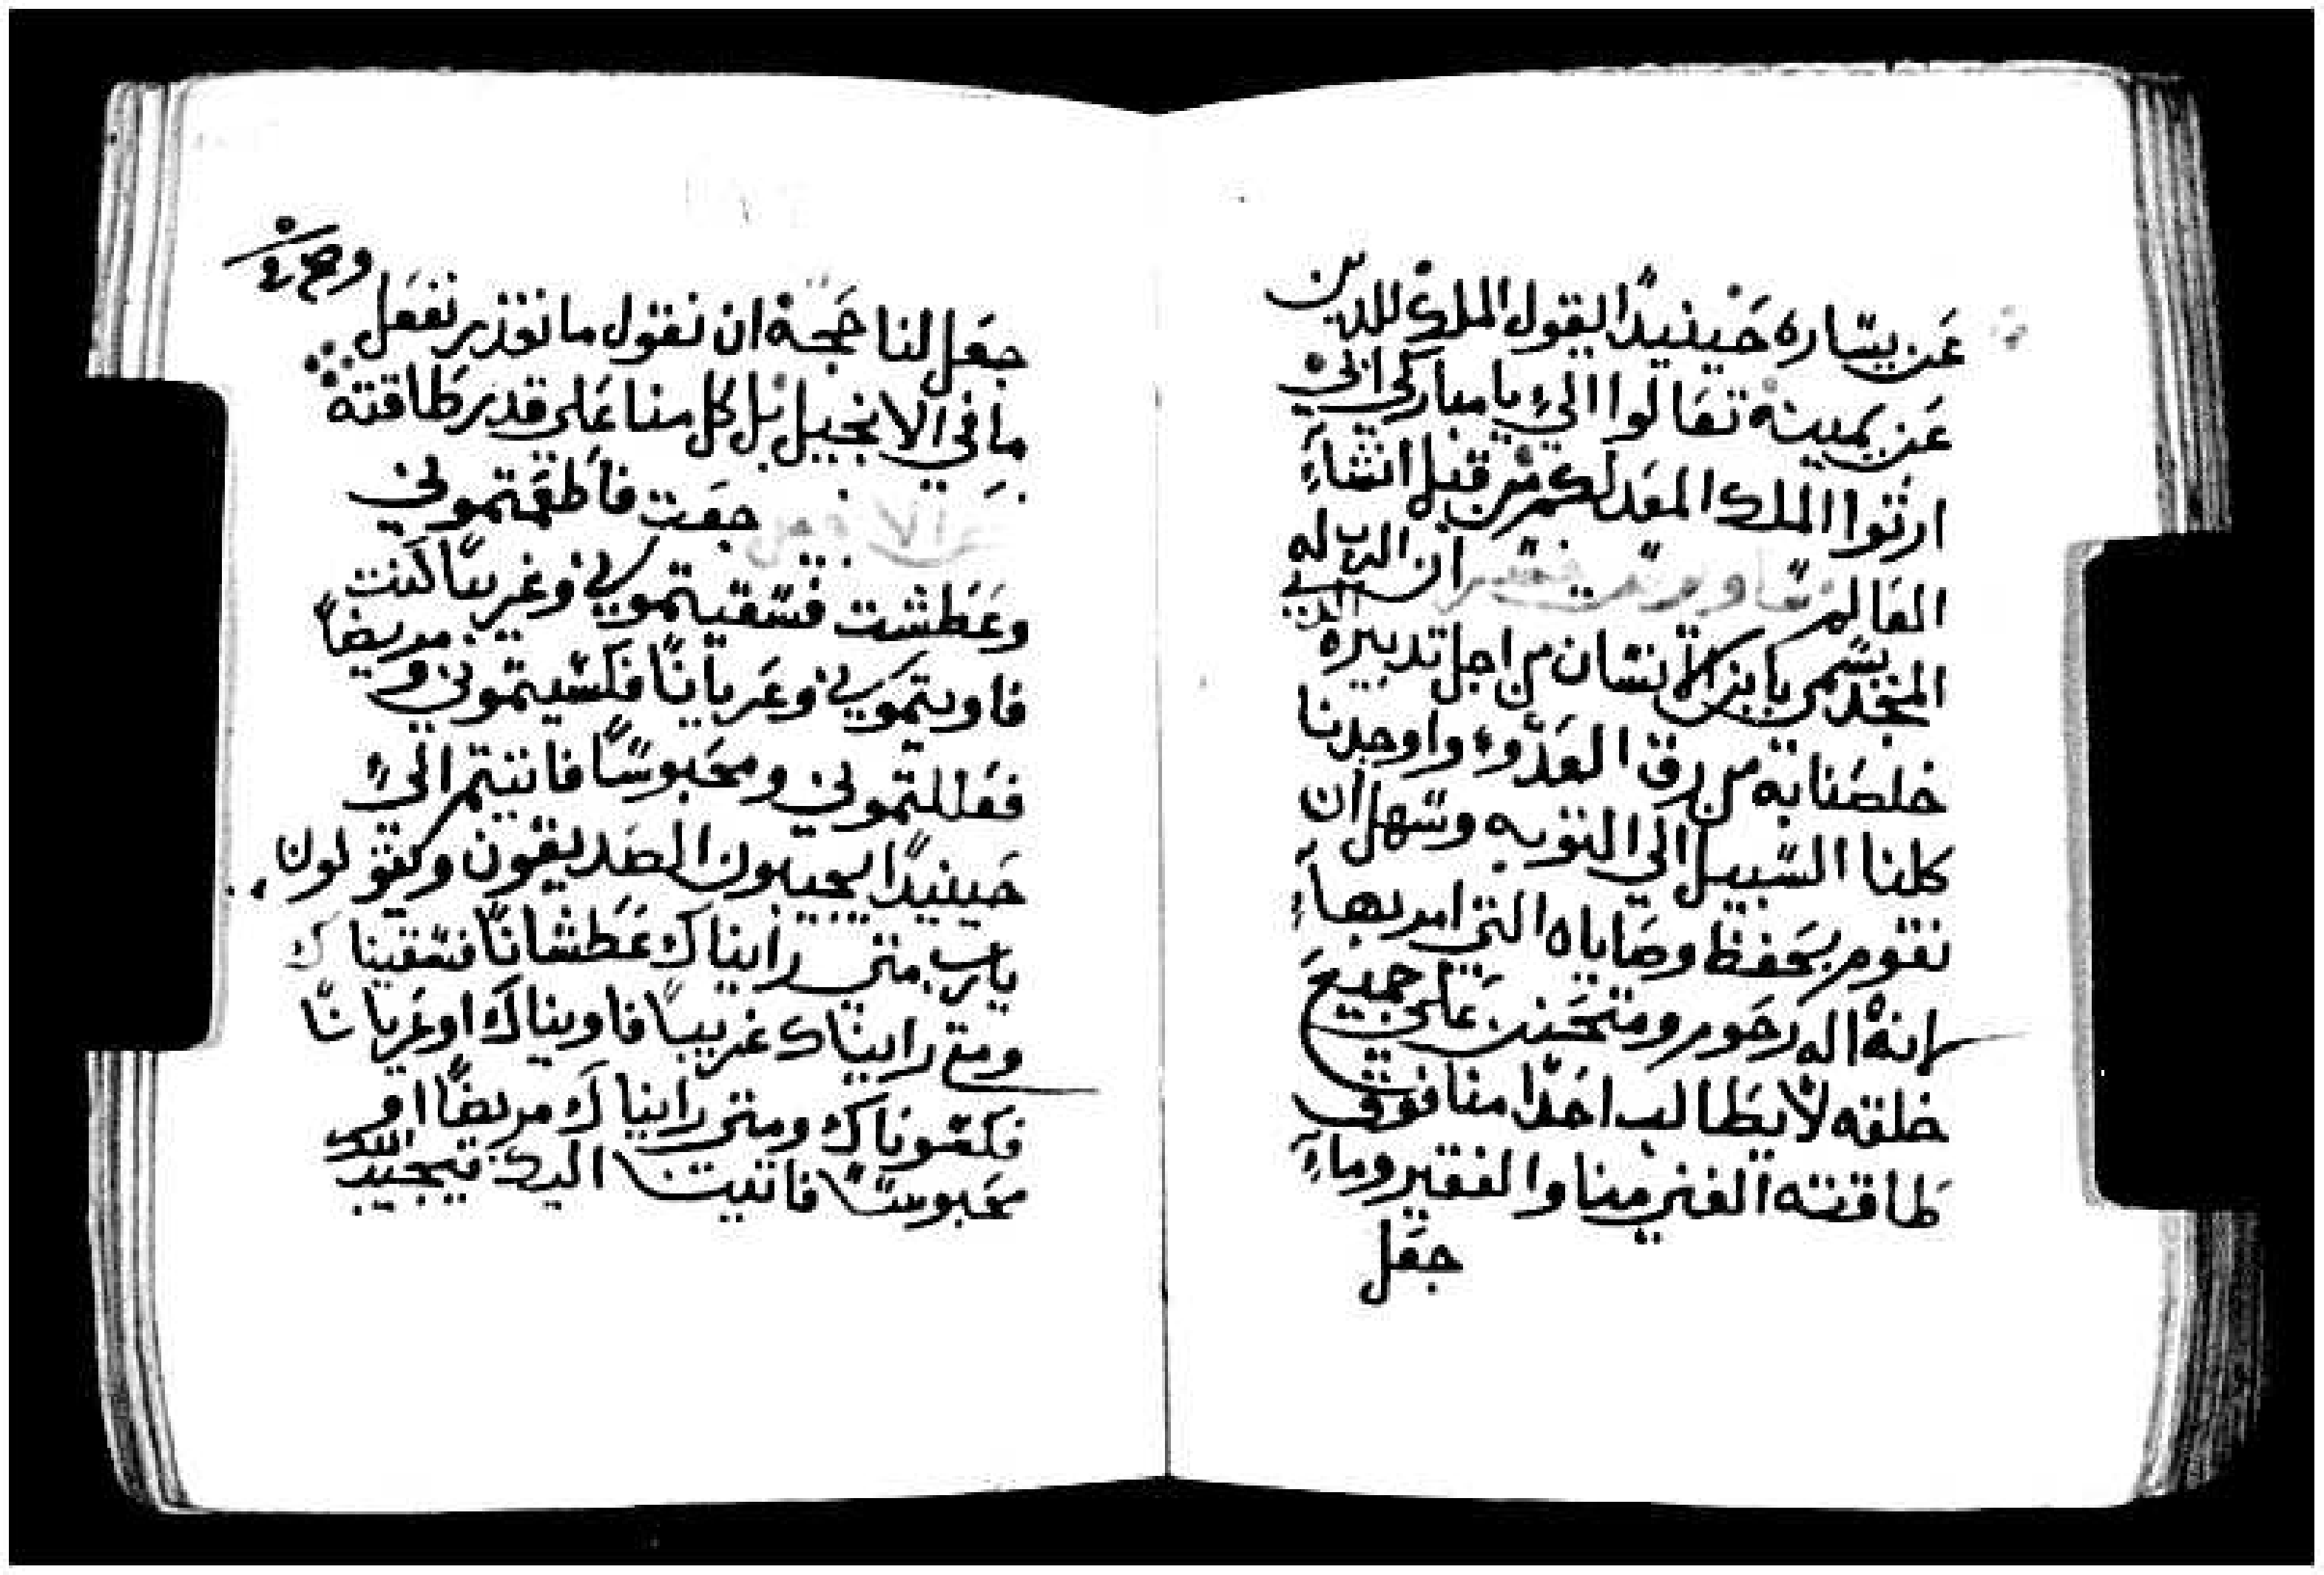 عَن يسَاره حَينيدًا يقول الملك للدين
عَن يمينهْ تعَالوا اليِ يا مباركي ابي
ارثوا الملك المعَد لكم من قبل انشاءِ
العَالم ان الرب له
المجد يسَمي بابن الانسَان من اجل تدبيره الذي
خلصَنا به من رق العَدُوء واوجدنا
كلنا السَبيل الي التوبه وسَهل ان
نقوم بحَفظ وصَاياه التي امر بهاءِ
انهْ اله رَحوم ومتحَنن عَلي جميعَ
خلقه لا يطَالب احَدًا منا فوق
طاقته الغني منا والفقير وماءِ
جعَل
جعَل لنا حَجهْ ان نقول ما نقدر نفعَل
ما في الانجيل بل كل منا عَلي قدر طَاقتهْ
جعَت فاطعَمتموني
وعَطَشت فسَقيتموني وغريبًا كنت
فاويتموني وعَريانًا فكسَيتموني ومريضًا
فعَللتموني ومحَبوسًا فاتيتم اليِ
حَينيدًا يجيبون الصَديقون ويقولون
يارب متي رايناك عَطَشانًا فسَقيناك
ومتي رايناك غريبًا فاويناك او عَريانًا
فكسَوناك ومتي رايناك مريضًا او
محَبوسًا فاتيتنا اليك فيجيب الملك